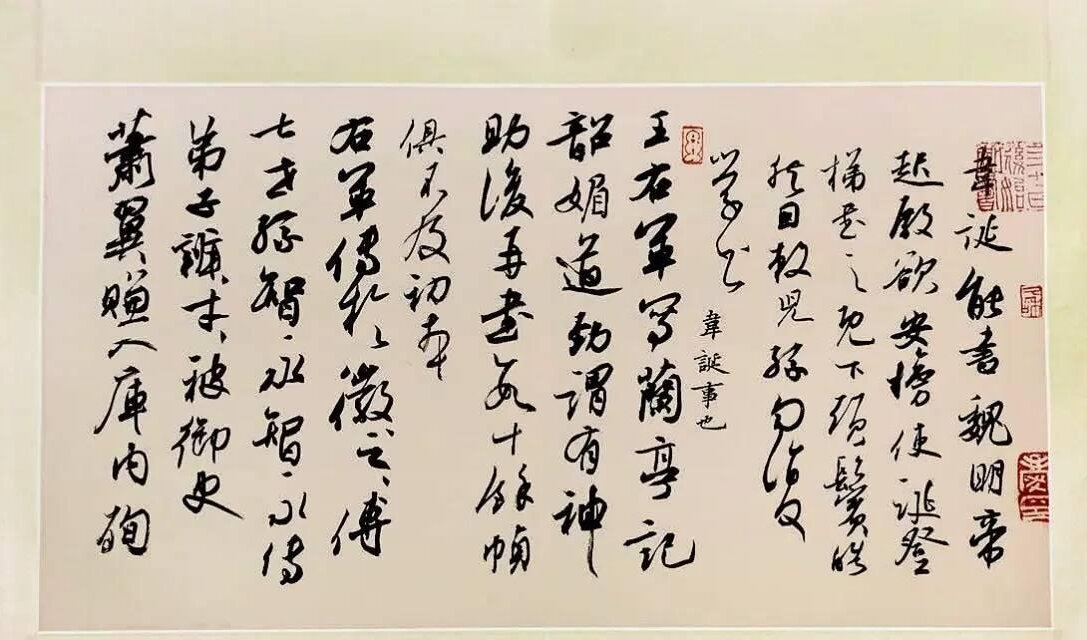 韋誕能書魏明帝
起殿欲安榜使誕登
梯書之既下頭鬢皓
然因敕兒孫勿復
學書 韋誕事也
王右軍寫蘭亭記
韶媚遒勁謂有神
助後再書數十餘幀
俱不及初本
右軍傳於徽之之傳
七世孫智永智永傳
弟子辯才才被御史
蕭翼賺入庫內殉